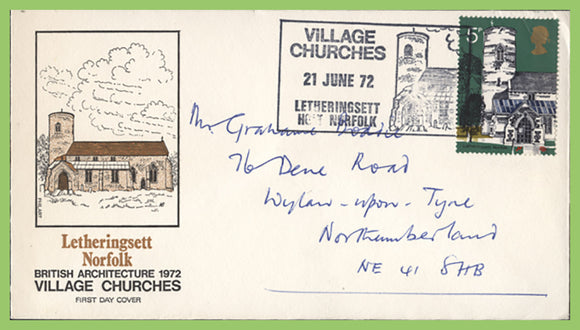 VILLAGE
CHURCHES
21 JUNE 72
LETHERINGSETT
HOLT NORFOLK
5p
Mr. Graham
76 Dene Road
Wylam-upon-Tyne
Northumberland
NE 41 8HB
PHILART
Letheringsett
Norfolk
BRITISH ARCHITECTURE 1972
VILLAGE CHURCHES
FIRST DAY COVER